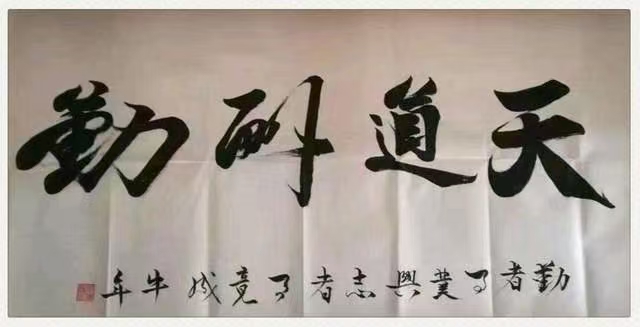 天道酬勤
勤者事業興志者事竟成 牛年